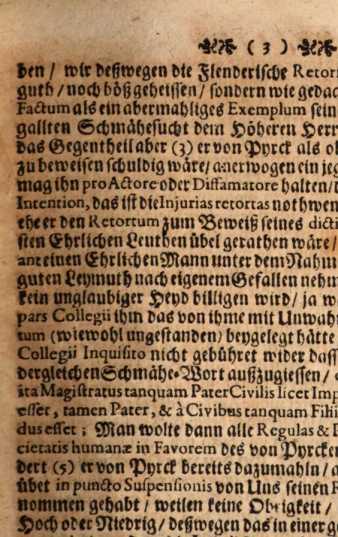 ( 3 )
ben / wir deßwegen die Flenderische Retor
guth / noch böß geheissen / sondern wie gedac
Factum als ein abermahliges Exemplum sein
gallten Schmähesucht dem Höheren Herr
das Gegentheil aber (3) er von Pyrck als ob
zu beweisen schuldig wäre / anerwogen ein jeg
mag ihn pro Actore oder Diffamatore halten /
Intention, das ist die Injurias retortas nothwen
ehe er den Retortum zum Beweiß seines dicti
sten Ehrlichen Leuthen übel gerathen wäre /
einen Ehrlichen Mann unter dem Nahm
guten Leymuth nach eigenem Gefallen nehm
kein unglaubiger Heyd billigen wird / ja w
pars Collegii ihm das von ihme mit Unwah
tum (wiewohl ungestanden) beygelegt hätte
Collegii Inquisito nicht gebühret wider dass
dergleichen Schmähe-Wort außzugiessen /
ita Magistratus tanquam Pater Civilis licet Imp
esset, tamen Pater, & à Civibus tanquam Filii
dus esset ; Man wolte dann alle Regulas &
cietatis humanæ in Favorem des von Pyrcken
dert (5) er von Pyrck bereits dazumahln /
übet in puncto Suspensionis von Uns seinen
nommen gehabt / weilen keine Obrigkeit /
Hoch oder Niedrig / deßwegen das in einer g